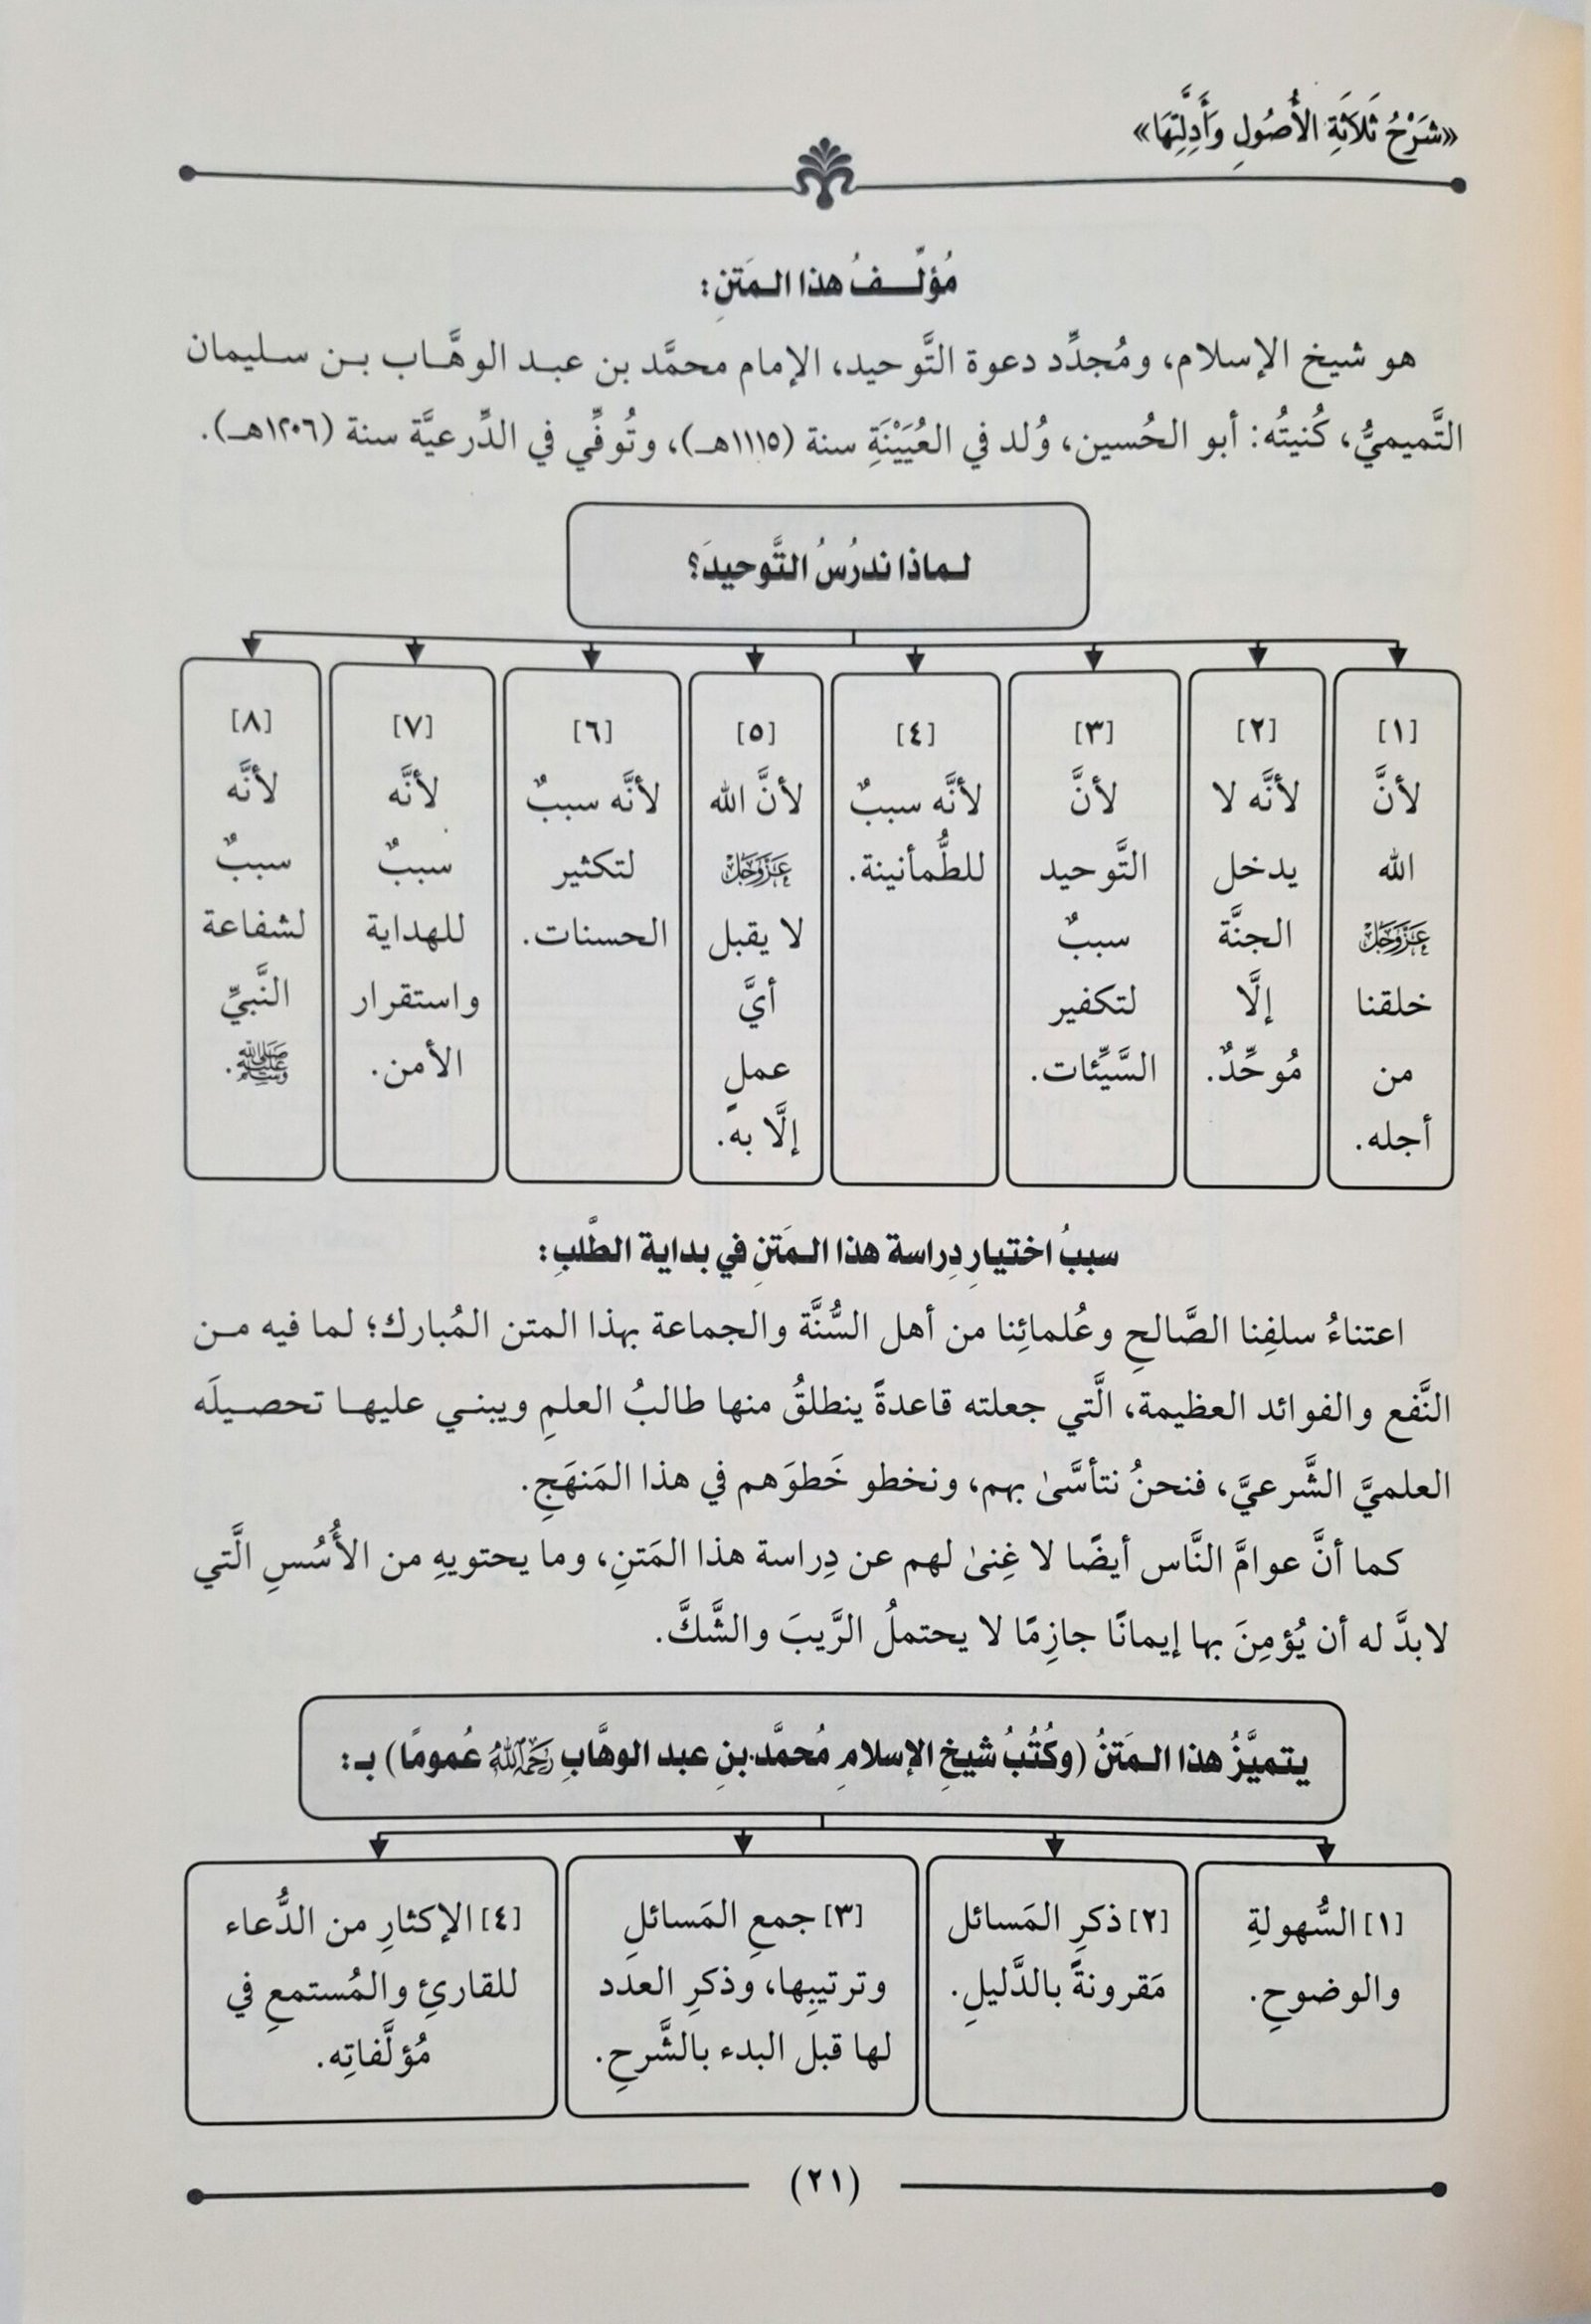 «شَرْحُ ثَلَاثَةِ الأُصُولِ وَأَدِلَّتِهَا»
مُؤلِّـفُ هذا المَتنِ:
هو شيخ الإسلام، ومُجدِّد دعوة التَّوحيد، الإمام محمَّد بن عبد الوهَّاب بن سليمان
التَّميميُّ، كُنيتُه: أبو الحُسين، وُلد في العُيَيْنَةِ سنة (١١١٥هـ)، وتُوفِّي في الدِّرعيَّة سنة (١٢٠٦هـ).
لماذا ندرُسُ التَّوحيدَ؟
[١]
لأنَّ
الله
عَزَّوَجَلَّ
خلقنا
من
أجله.
[٢]
لأنَّه لا
يدخل
الجنَّة
إلَّا
مُوحِّدٌ.
[٣]
لأنَّ
التَّوحيد
سببٌ
لتكفير
السَّيِّئات.
[٤]
لأنَّه سببٌ
للطُّمأنينة.
[٥]
لأنَّ الله
عَزَّوَجَلَّ
لا يقبل
أيَّ
عملٍ
إلَّا به.
[٦]
لأنَّه سببٌ
لتكثير
الحسنات.
[٧]
لأنَّه
سببٌ
للهداية
واستقرار
الأمن.
[٨]
لأنَّه
سببٌ
لشفاعة
النَّبيِّ
ﷺ.
سببُ اختيارِ دِراسة هذا المَتنِ في بداية الطَّلبِ:
اعتناءُ سلفِنا الصَّالحِ وعُلمائِنا من أهل السُّنَّة والجماعة بهذا المتن المُبارك؛ لما فيه من
النَّفع والفوائد العظيمة، الَّتي جعلته قاعدةً ينطلقُ منها طالبُ العلمِ ويبني عليها تحصيلَه
العلميَّ الشَّرعيَّ، فنحنُ نتأسَّىٰ بهم، ونخطو خَطوَهم في هذا المَنهَجِ.
كما أنَّ عوامَّ النَّاس أيضًا لا غِنىٰ لهم عن دِراسة هذا المَتنِ، وما يحتويهِ من الأُسُسِ الَّتي
لابدَّ له أن يُؤمِنَ بها إيمانًا جازِمًا لا يحتملُ الرَّيبَ والشَّكَّ.
يتميَّزُ هذا المَتنُ (وكُتُبُ شيخِ الإسلامِ مُحمَّد بنِ عبد الوهَّابِ رَحِمَهُ اللَّهُ عُمومًا) بـ:
[١] السُّهولةِ
والوضوحِ.
[٢] ذكرِ المَسائل
مَقرونةً بالدَّليلِ.
[٣] جمعِ المَسائلِ
وترتيبِها، وذكرِ العدَد
لها قبل البدء بالشَّرحِ.
[٤] الإكثارِ من الدُّعاء
للقارئِ والمُستمعِ في
مُؤلَّفاتِه.
(٢١)